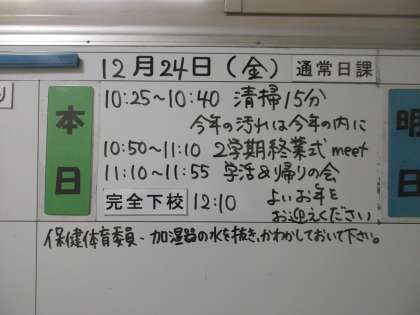 12月24日（金） 通常日課
本日
10:25～10:40 清掃15分
今年の汚れは今年の内に
10:50～11:10 2学期終業式 meet
11:10～11:55 学活&帰りの会
完全下校 12:10 よいお年を
お迎えください
明日
保健体育委員 - 加湿器の水を抜き、かわかしておいて下さい。